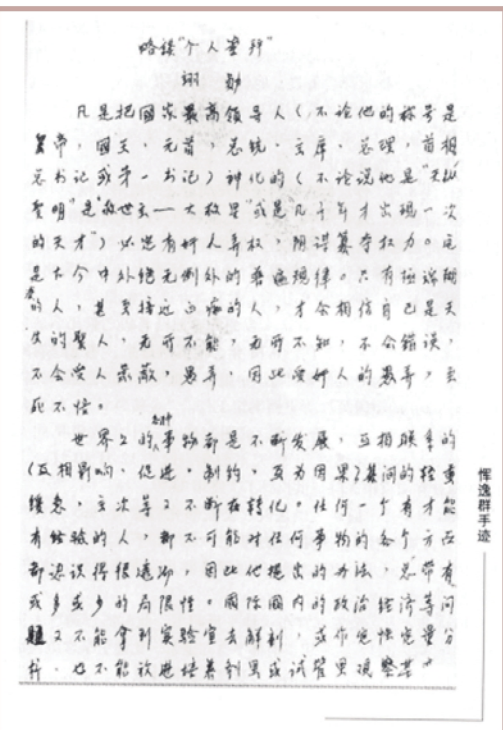 略谈“个人崇拜”
翊勋
凡是把國家最高领导人(不论他的称号是
皇帝,國王,元首,总统,主席,总理,首相
总书记或第一书记)神化的(不论说他是“天纵
圣明”是“救世主——大救星”或是几千年才出现一次
的天才”)必定有奸人弄权,阴谋篡夺权力。这
是古今中外绝无例外的普遍规律。只有极端
的人,甚至接近的人,才会相信自己是天
的聖人,无所不能,无所不知,不会错误,
不会受人蒙蔽,愚弄,因此受奸人的愚弄,至
死不悟。
世界上的各种事物都是不断发展,互相联系的
(互相影响,促进,制约,互为因果)其间的轻重
缓急,主次等又不断在转化,任何一个有才能
有经验的人,都不可能对任何事物的各个方面
都认识得很透彻,因此他提出的办法,总带有
或多或少的局限性。國际國内的政治经济等问
题又不能拿到实验室去解剖,或作定性定量分
析,也不能放进培养剂里或试管里观察其
恽逸群手迹